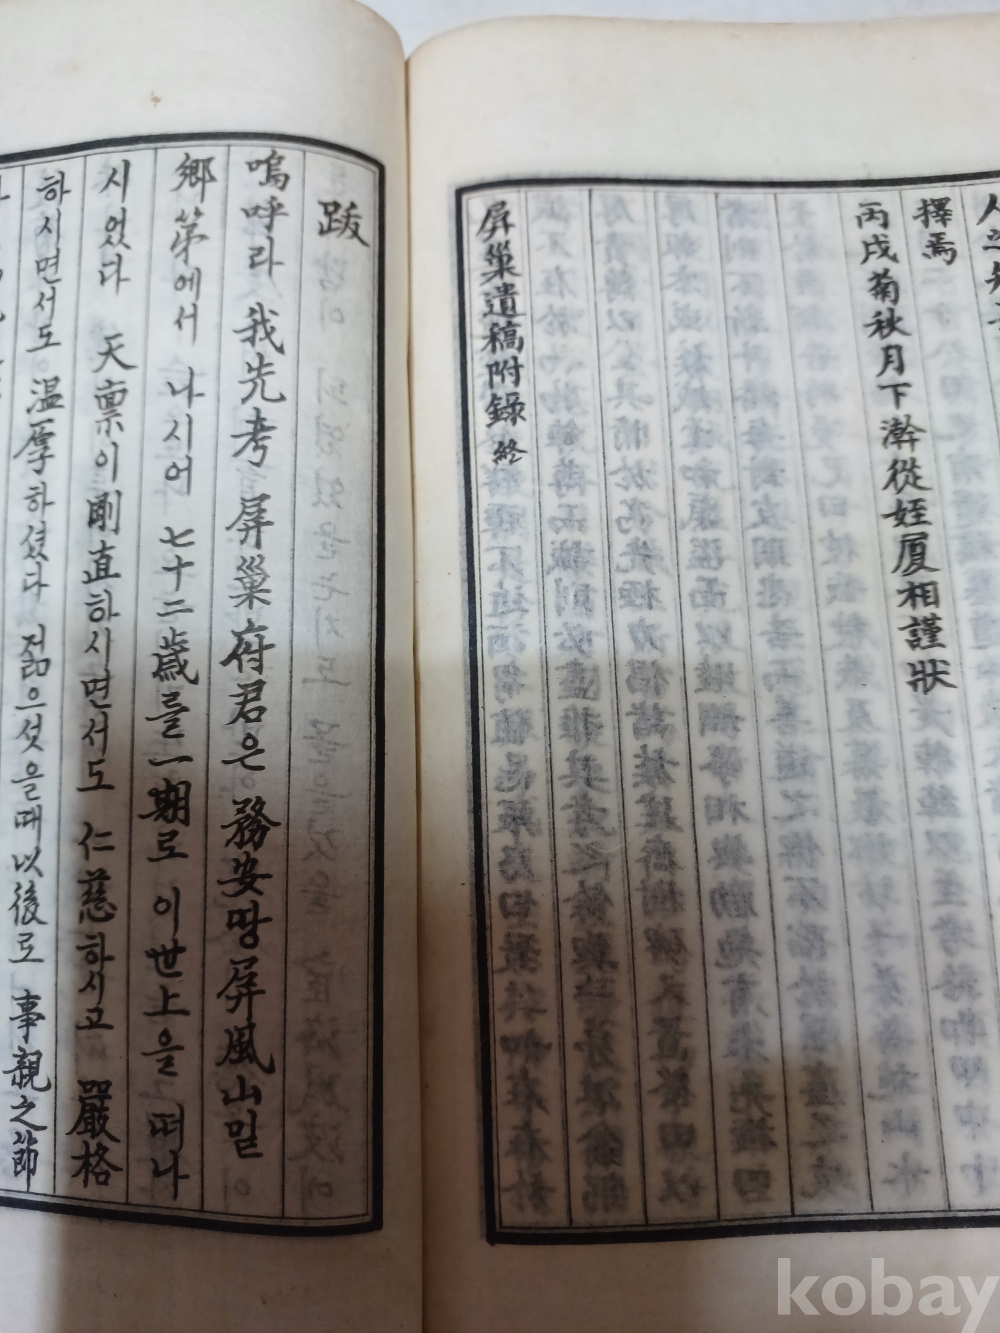 擇焉
丙戌菊秋月下澣從姪厦相謹狀
屛巢遺稿附錄 終
跋
嗚呼라 我先考 屛巢府君은 務安땅 屛風山밑
鄕第에서 나시어 七十二歲를 一期로 이世上을 떠나
시었다 天禀이 剛直하시면서도 仁慈하시고 嚴格
하시면서도 溫厚하셨다 젊으셧을때以後로 事親之節
kobay